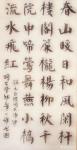 春山暖日和風闌杆
樓閣簾櫳楊柳秋千
院中啼鶯舞燕小橋
流水飛紅